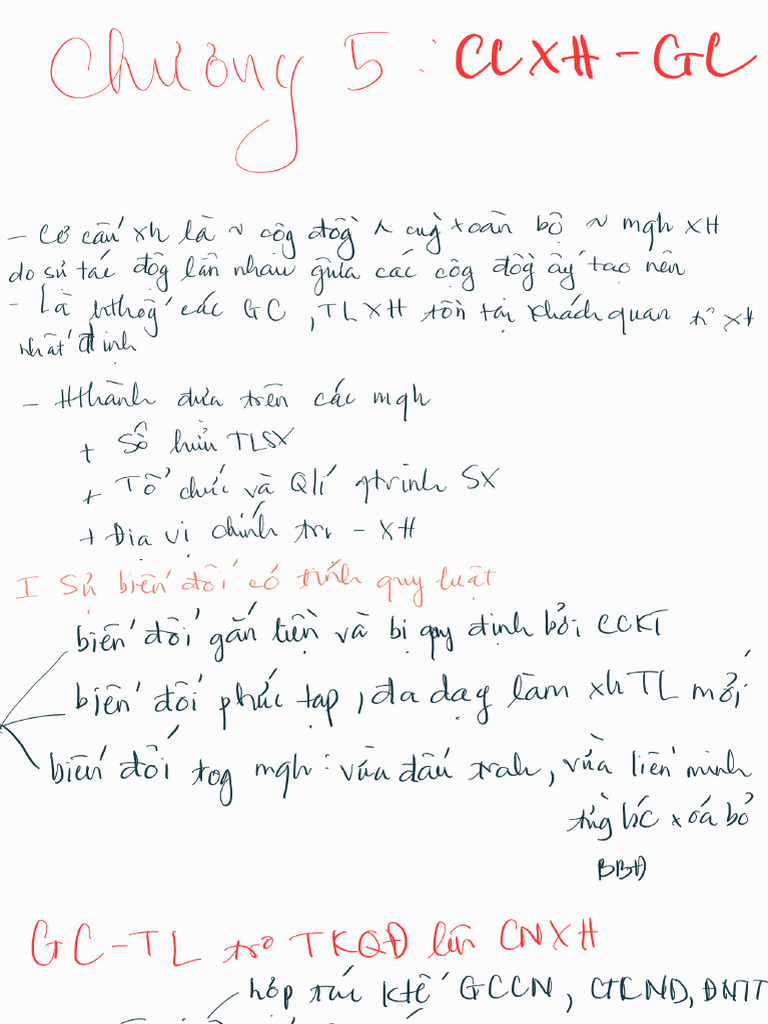 Chương 5 : CCXH - GC
- Cơ cấu xh là ~ cộg đồg ^ cùg toàn bộ ~ mqh XH
do sự tác độg lẫn nhau giữa các cộg đồg ấy tạo nên
- Là hthốg các GC, TLXH tồn tại khách quan tr° XH
nhất định
- Hthành dựa trên các mqh
+ Sở hữu TLSX
+ Tổ chức và Qlí qtrình SX
+ Địa vị chính trị - XH
I Sự biến đổi có tính quy luật
biến đổi gắn liền và bị quy định bởi CCKT
biến đổi phức tạp, đa dạg làm xh TL mới
biến đổi tog mqh : vừa đấu trah, vừa liên minh
từg bc xoá bỏ
BBĐ
GC-TL tr° TKQĐ lên CNXH
hợp tác ktế GCCN, GCND, ĐNTT